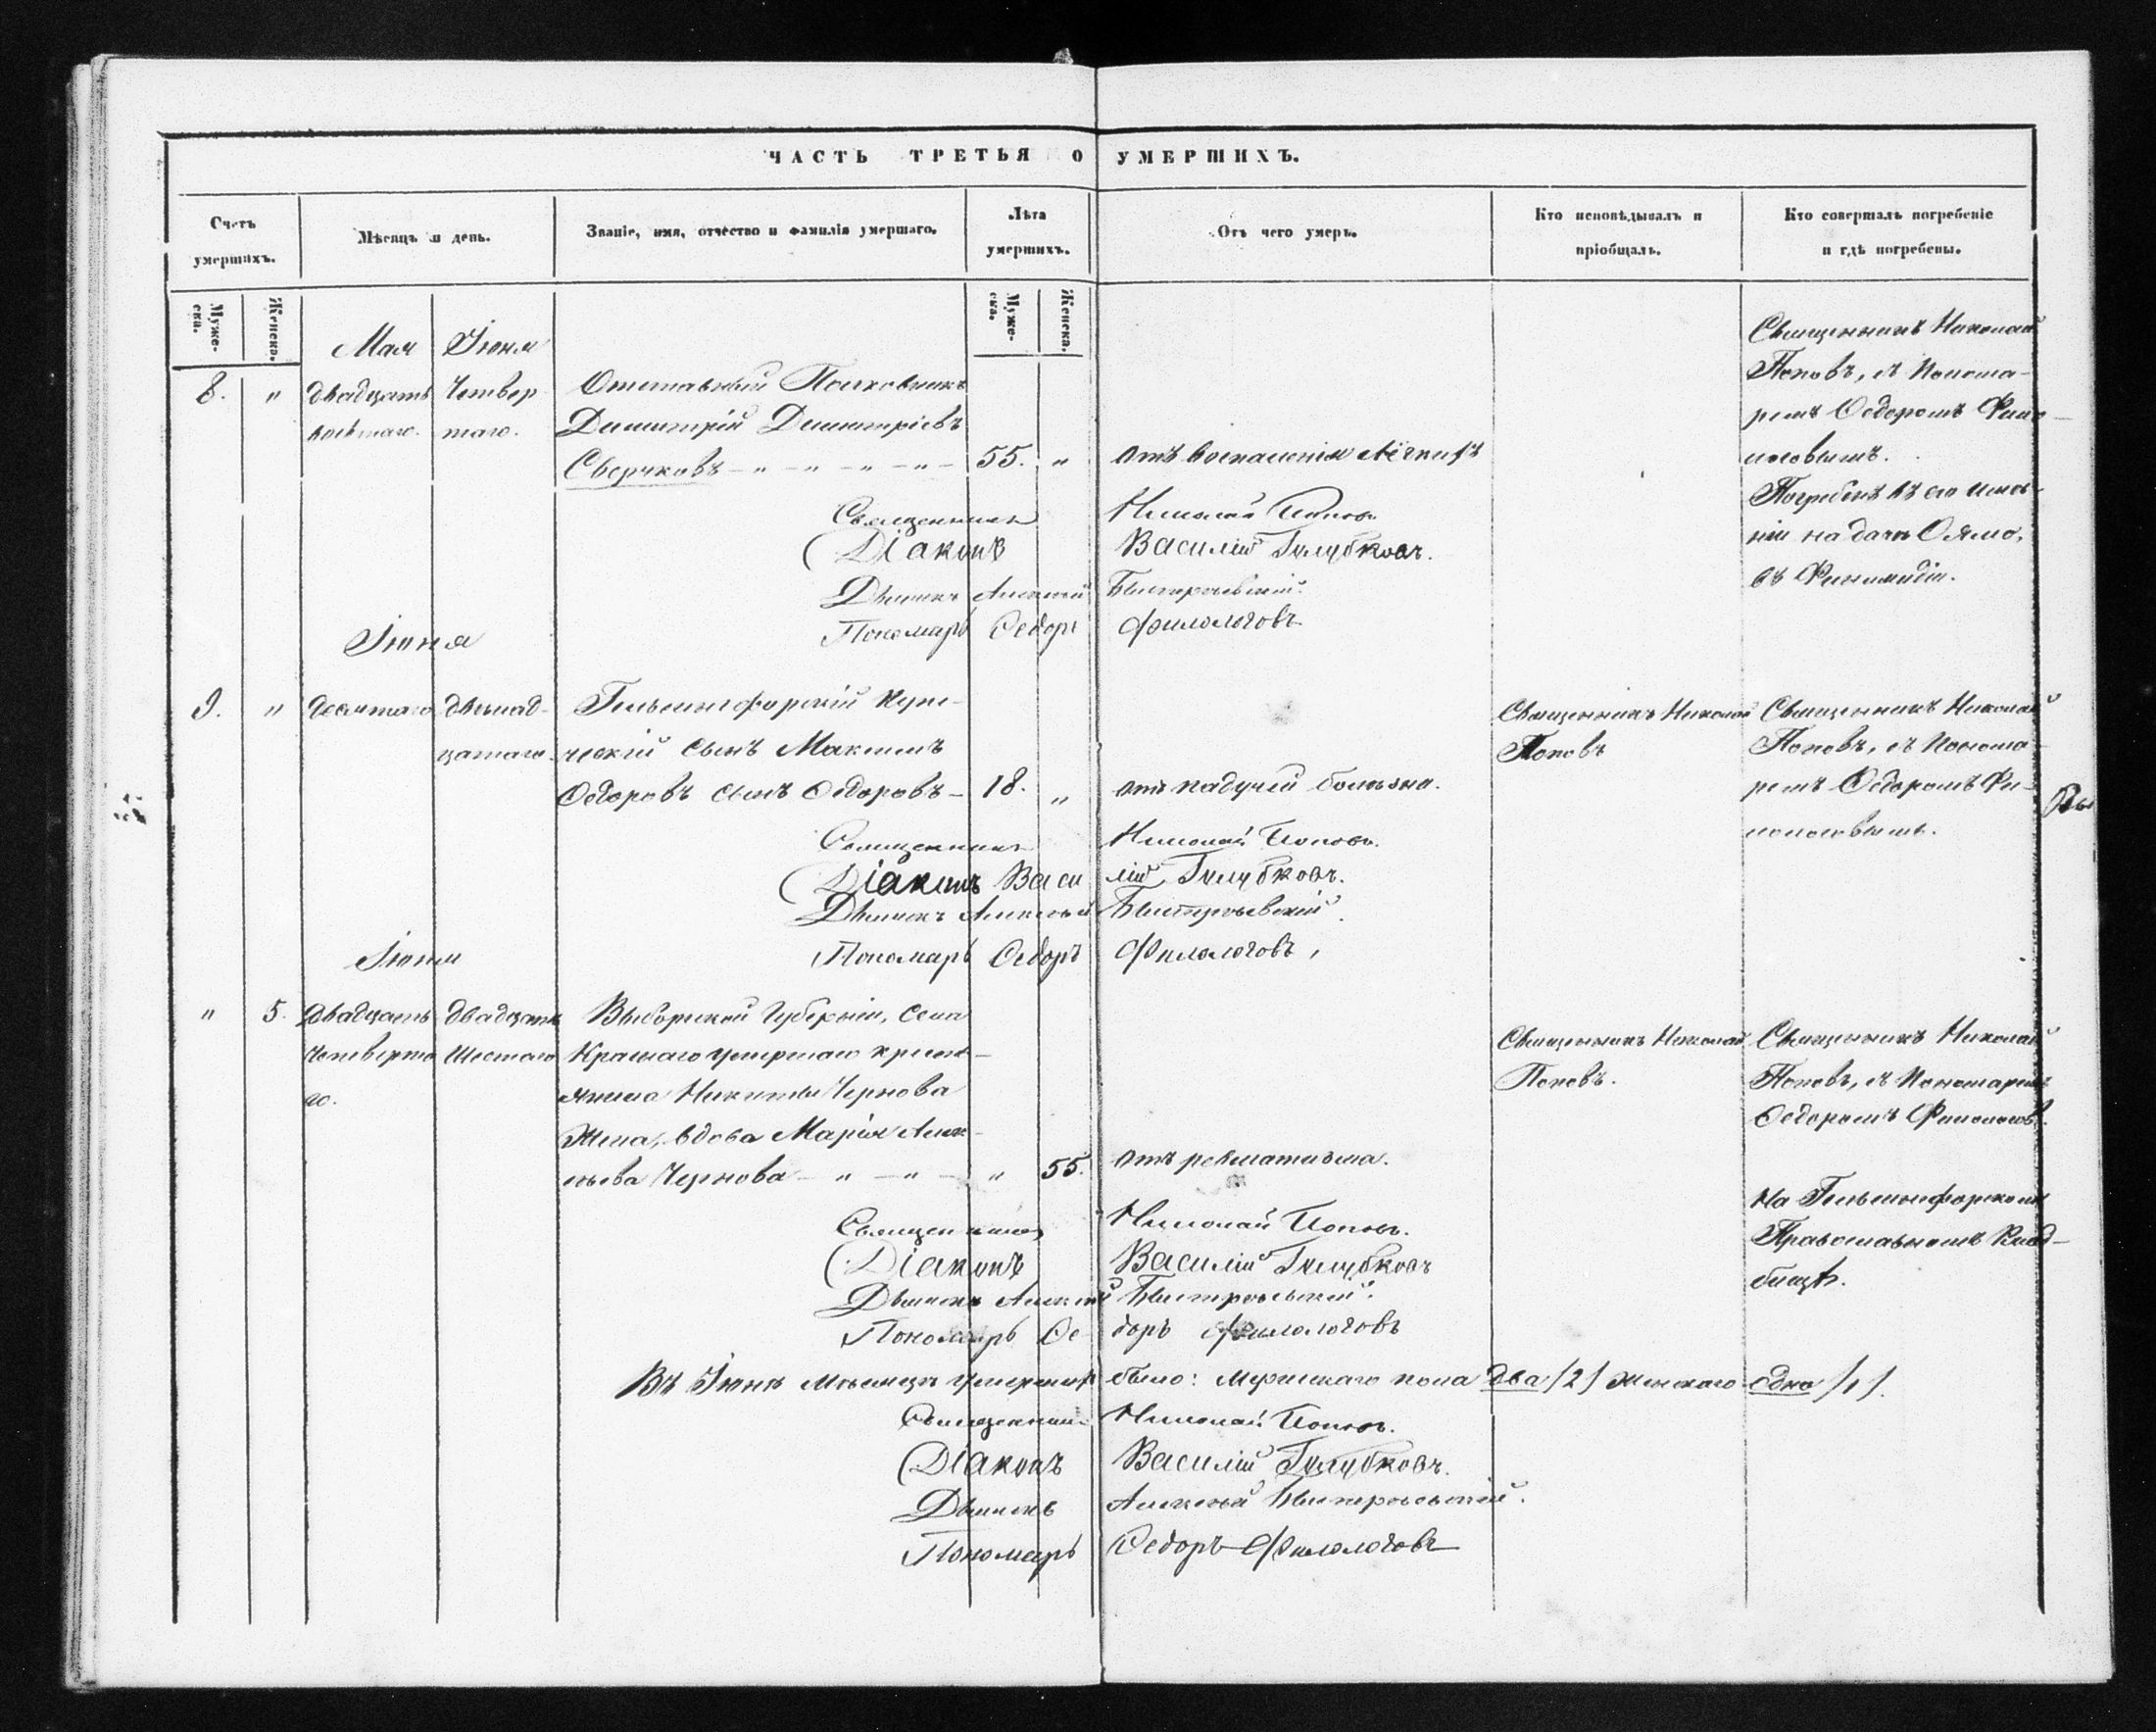 ЧАСТЬ ТРЕТЬЯ О УМЕРШИХЪ.
Счетъ умершихъ.
Мѣсяцъ и день.
Званіе, имя, отчество и фамилія умершаго.
Лѣта умершихъ.
Отъ чего умеръ.
Кто исповѣдывалъ и пріобщалъ.
Кто совершалъ погребеніе и гдѣ погребены.
Муже-
ска.
Женска.
Муже-
ска.
Женска.
Мая
Іюня
8. „
двадцать
Четвер
таго.
Отставный Полковникъ
Димитрій Димитріевъ
Сверчковъ – „ – „ – „ – „ – 55. „
отъ воспаленія лёгкихъ
Священникъ Николай
Поповъ, съ Понома-
ремъ Ѳедоромъ Фило-
логовымъ.
Погребенъ въ его имѣ-
ніи на дачѣ
въ Финляндіи.
Священникъ Николай Поповъ
Діаконъ Василій Голубковъ.
Дьячекъ Алексѣй
Пономарь Ѳедоръ Филологовъ
Іюня
9. „
десятаго
двѣнад-
цатаго.
Гельсингфорскій Купе-
ческій сынъ Максимъ
Ѳедоровъ сынъ Ѳедоровъ – 18. „
отъ падучей болѣзни.
Священникъ Николай
Поповъ
Священникъ Николай
Поповъ, съ Понома-
ремъ Ѳедоромъ Фи-
лологовымъ.
Священникъ Николай Поповъ.
Діаконъ Василій Голубковъ.
Дьячекъ Алексѣй
Пономарь Ѳедоръ Филологовъ,
Іюня
„ 5.
Двадцать
Четверта
го.
двадцать
Шестаго
Выборгской Губерніи, Села
Краснаго умершаго кресть-
янина Никиты Чернова
Жена, вдова Марія Алек-
ѣева Чернова – „ – „ – „ 55.
отъ ревматизма.
Священникъ Николай
Поповъ.
Священникъ Николай
Поповъ, съ Пономаремъ
Ѳедоромъ Филологов.
На Гельсингфорскомъ
Православномъ Клад-
бищѣ.
Священникъ Николай Поповъ.
Діаконъ Василій Голубковъ
Дьячекъ Алексѣй
Пономарь Ѳедоръ Филологовъ
Въ Іюнѣ Мѣсяцѣ умершихъ было: Мужескаго пола два /2/ женскаго одна /1/.
Священникъ Николай Поповъ.
Діаконъ Василій Голубковъ.
Дьячекъ Алексѣй
Пономарь Ѳедоръ Филологовъ